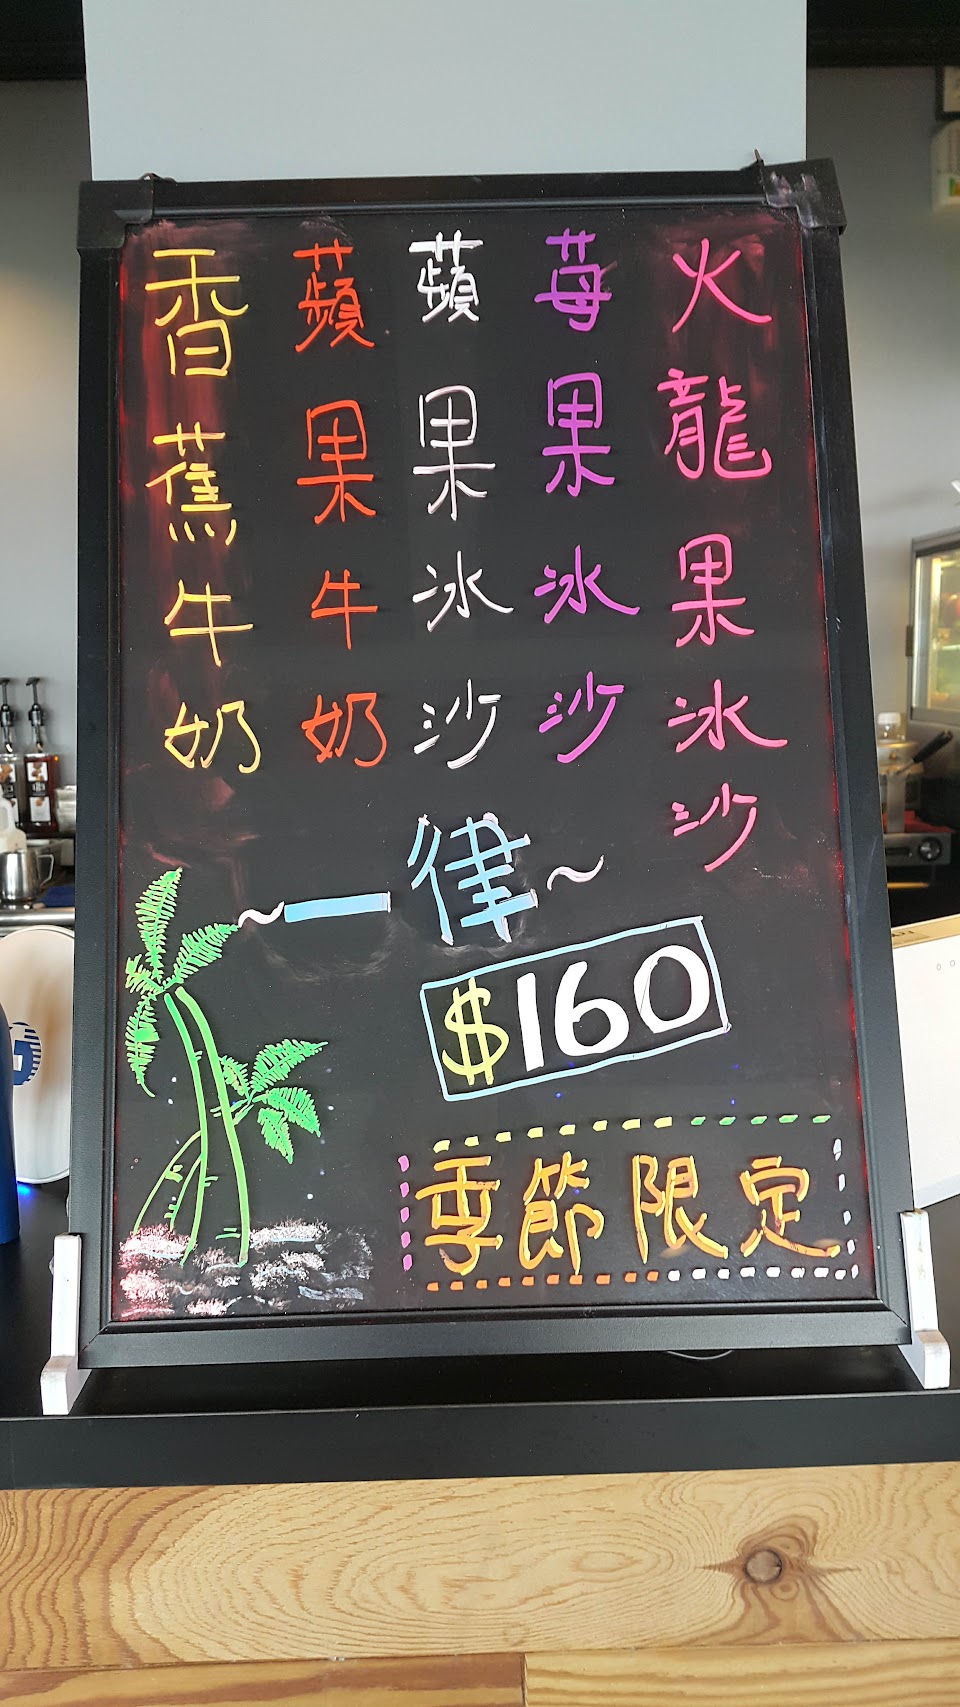 火龍果冰沙
莓果冰沙
蘋果冰沙
蘋果牛奶
香蕉牛奶
~一律~
$160
季節限定